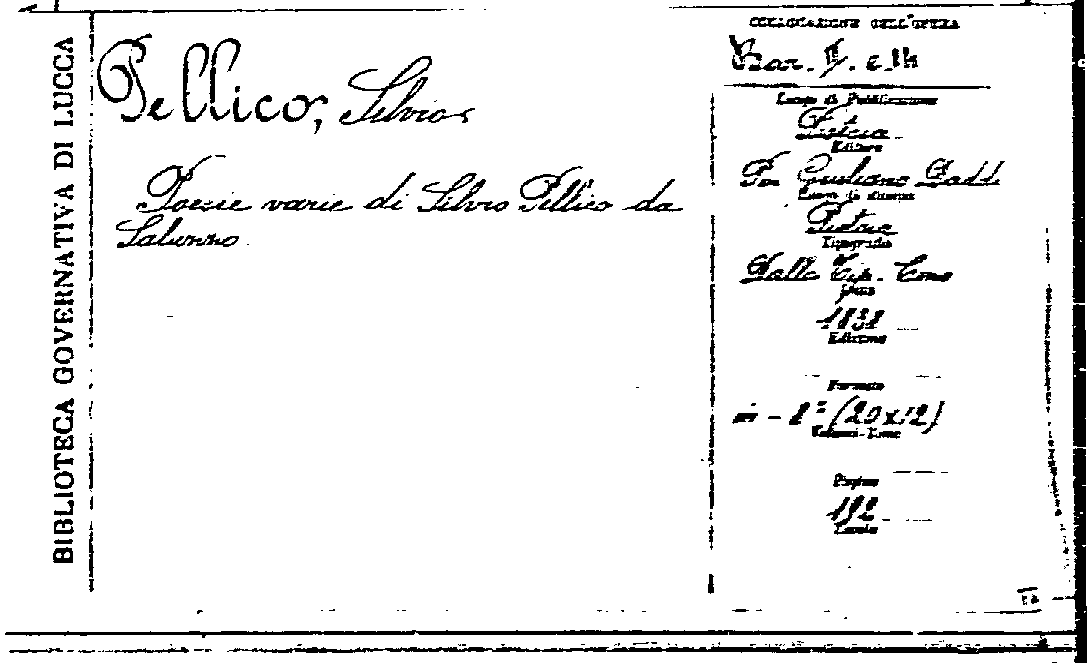 BIBLIOTECA GOVERNATIVA DI LUCCA
Pellico, Silvio
Poesie varie di Silvio Pellico da
Saluzzo
COLLOCAZIONE DELL'OPERA
Luogo di Pubblicazione
Pistoia
Editore
Per Giuliano
Luogo di stampa
Pistoia
Tipografia
Dalla Tip. Cino
Data
Edizione
Formato
in - 8° (20x12)
Volumi-Tomo
Pagine
192
Tavole